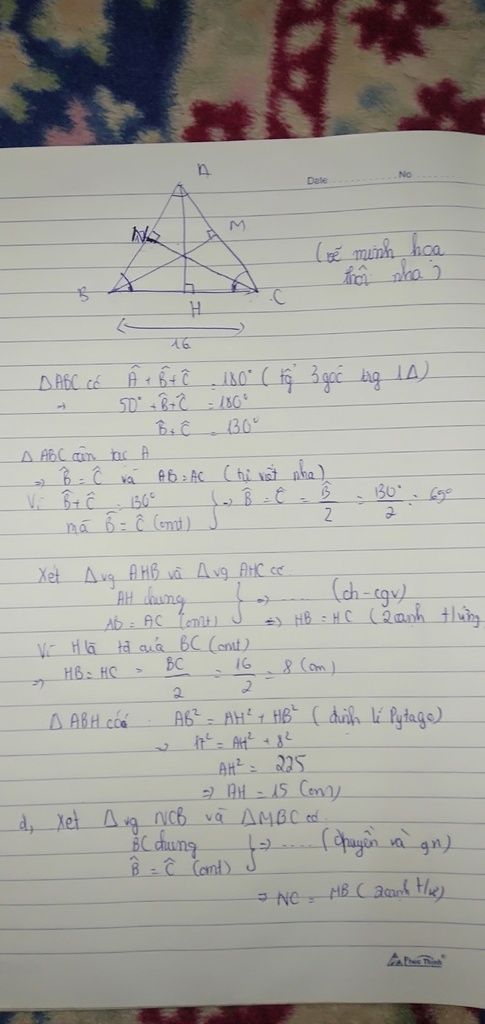 Date No
A
N
M
B
C
H
16
(vẽ minh họa
thôi nha)
ΔABC có Â + B̂ + Ĉ = 180° (tg 3 góc trg 1Δ)
→ 50° + B̂ + Ĉ = 180°
B̂ + Ĉ = 130°
Δ ABC cân tại A
⇒ B̂ = Ĉ và AB = AC (tự viết nha)
Vì B̂ + Ĉ = 130°
mà B̂ = Ĉ (cmt) } ⇒ B̂ = Ĉ = B̂/2 = 130°/2 = 65°
Xét Δvg AHB và Δvg AHC có
AH chung
AB = AC (cmt) } ⇒ ..... (ch - cgv)
⇒ HB = HC (2 cạnh t/ứng
Vì H là tđ của BC (cmt)
⇒ HB = HC = BC/2 = 16/2 = 8 (cm)
Δ ABH có: AB² = AH² + HB² (định lí Pytago)
⇒ 17² = AH² + 8²
AH² = 225
⇒ AH = 15 (cm)
d, Xét Δvg NCB và ΔMBC có
BC chung
B̂ = Ĉ (cmt) } ⇒ ..... (chuyền và gn)
⇒ NC = MB (2 cạnh t/ứ)
Phúc Thịnh